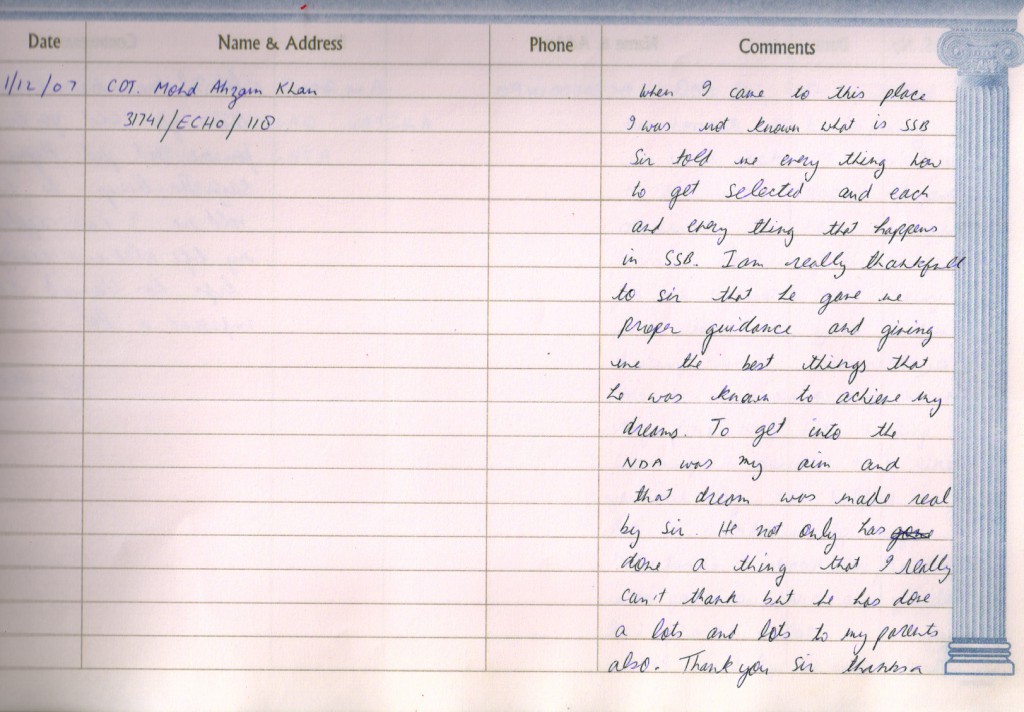 Date Name & Address Phone Comments
1/12/07 CDT. Mohd Ahzam Khan When I came to this place
31741/ECHO/118 I was not known what is SSB
Sir told me every thing how
to get selected and each
and every thing that happens
in SSB. I am really thankfull
to sir that he gave me
proper guidance and giving
me the best things that
he was known to achieve my
dreams. To get into the
NDA was my aim and
that dream was made real
by sir. He not only has gone
done a thing that I really
can't thank but he has done
a lots and lots to my parents
also. Thank you Sir thanks a